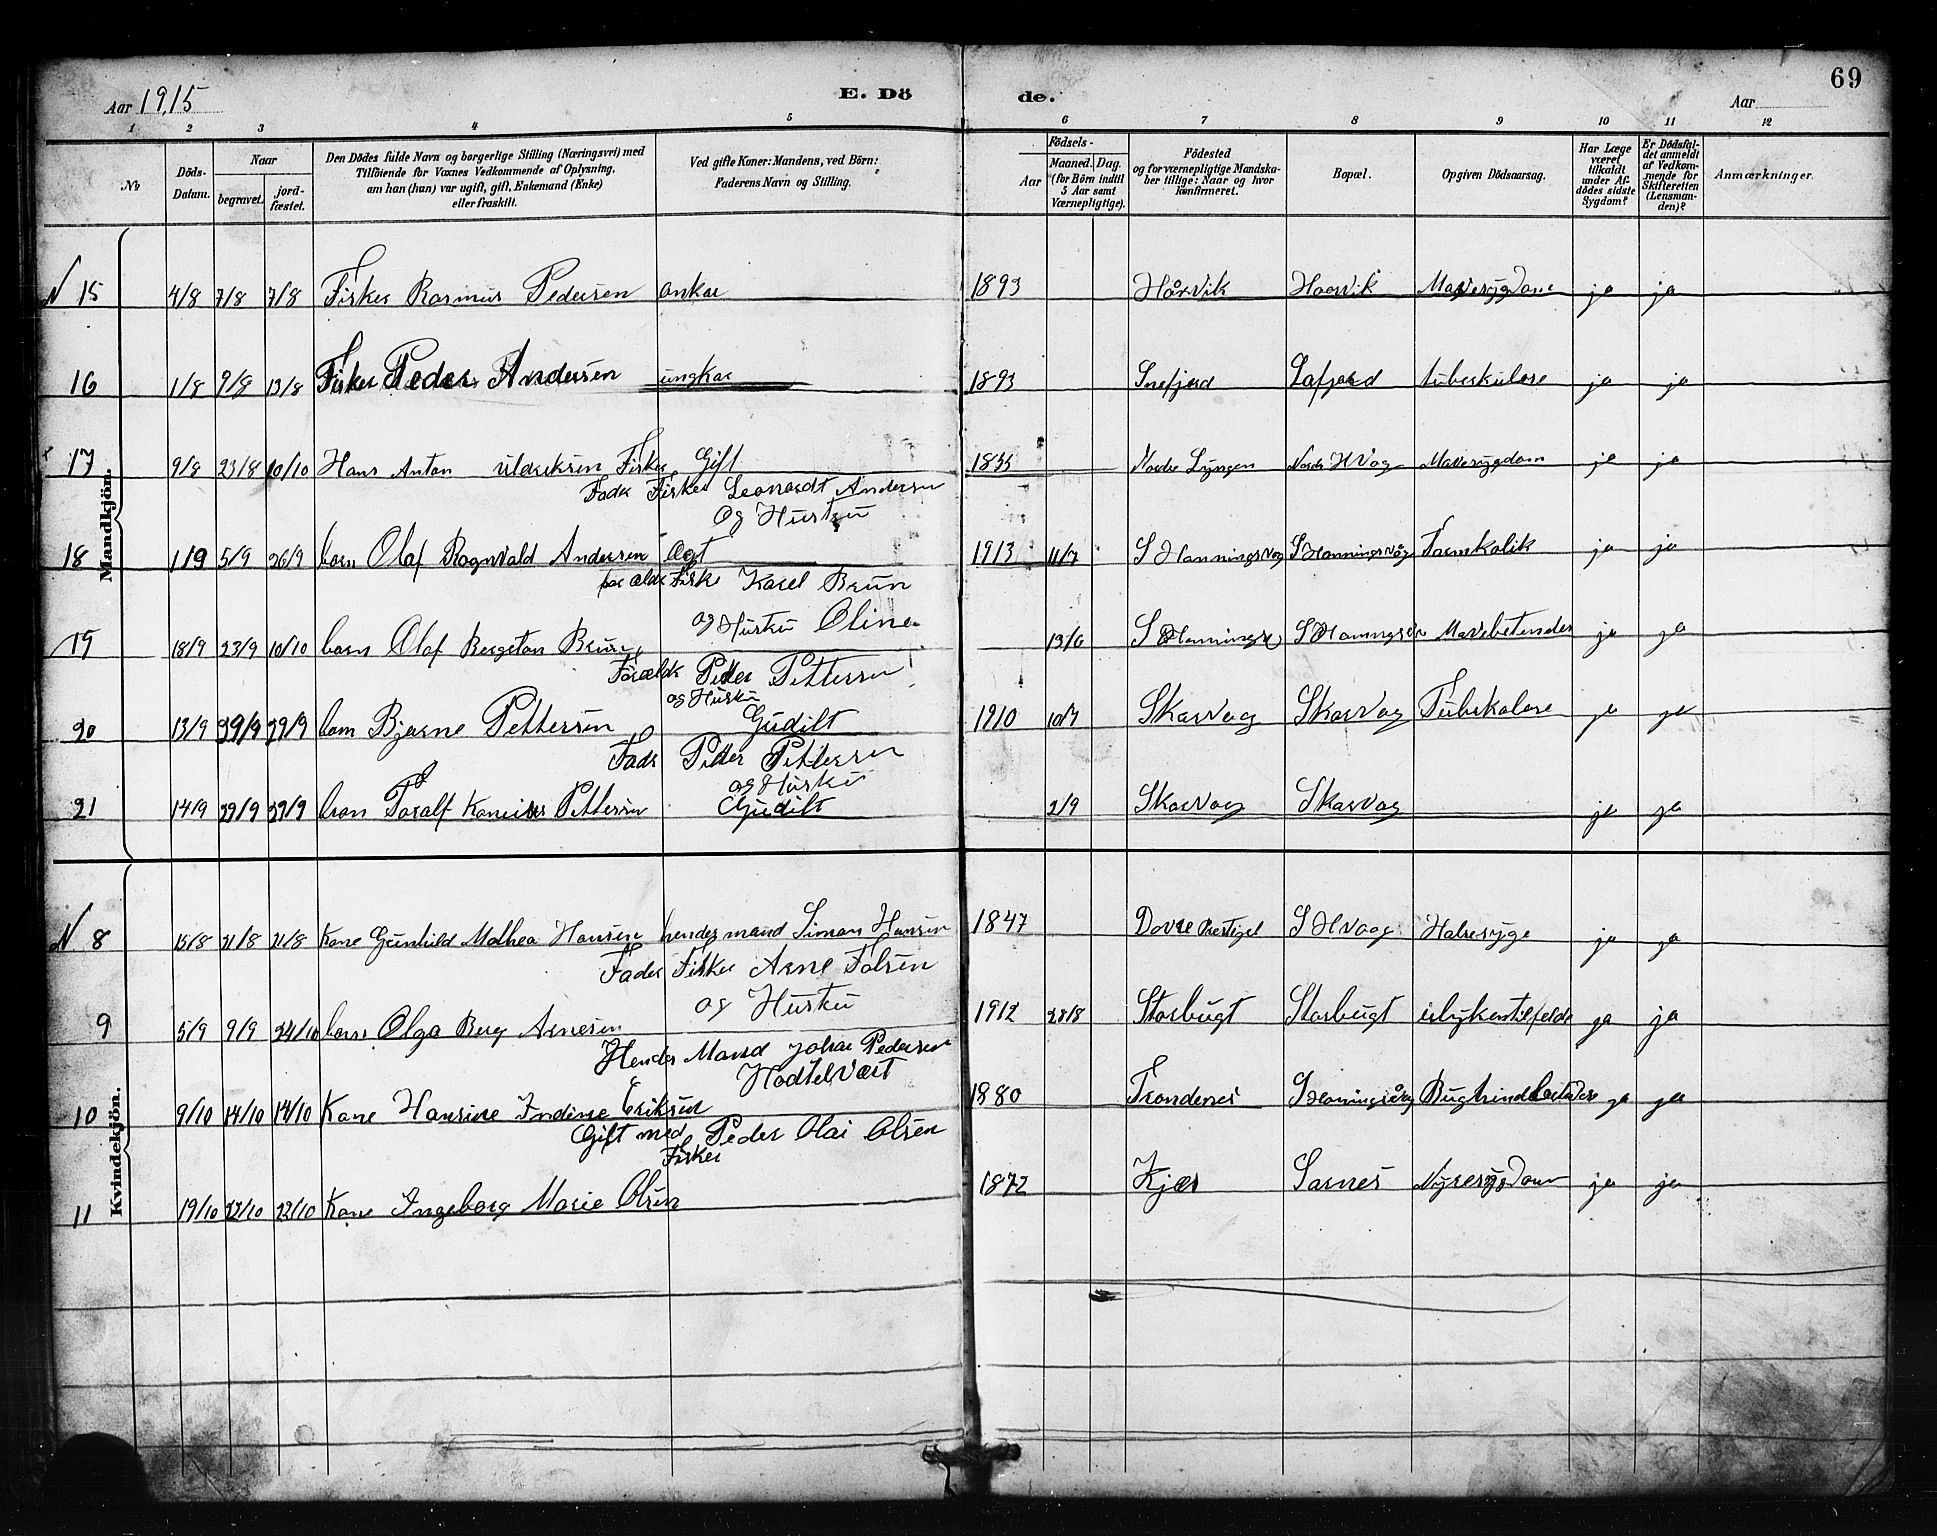 69
Aar 1915
E. Dö de.
Aar
1 2 3 4 5 6 7 8 9 10 11 12
No
Döds-Datum.
Naar
begravet.
jord-fæstet.
Den Dödes fulde Navn og borgerlige Stilling (Næringsvei) med
Tilföiende for Voxnes Vedkommende af Oplysning,
om han (hun) var ugift, gift, Enkemand (Enke)
eller fraskilt.
Ved gifte Koner: Mandens, ved Börn:
Faderens Navn og Stilling.
Födsels-
Aar
Maaned. Dag.
(for Börn indtil
5 Aar samt
Værnepligtige).
Födested
og for værnepligtige Mandska-
ber tillige: Naar og hvor
konfirmeret.
Bopæl.
Opgiven Dödsaarsag.
Har Læge
været
tilkaldt
under Af-
dödes sidste
Sygdom?
Er Dödsfal-
det anmeldt
af Vedkom-
mende for
Skifteretten
(Lensman-
den)?
Anmærkninger.
Mandkjön.
N 15 4/8 7/8 7/8 Fisker Rasmus Pedersen 1893 Hårvik Haarvik Mavesygdom ja ja
16 1/8 9/8 13/8 Fisker Peder Andersen ungkar 1893 Snefjord Lafjord tuberkulose ja ja
17 9/8 23/8 10/10 Hans Anton Uldriksen Fisker Gift Nordre Lyngen Mavesygdom ja ja
Fader Fisker Leonardt Andersen
og Hustru
18 1/9 5/9 26/9 barn Olaf Rognvald Andersen 1913 11/7 S Honningsvog S Honningsvåg Tarmkolik ja ja
Fiske Karel Brun
og Hustru Oline
19 18/9 23/9 10/10 barn Olaf Bergeton Brun 13/6 ja ja
Forældr Peder Pettersen
og Hustru
20 13/9 29/9 29/9 barn Bjarne Pettersen Gudilt 1910 10/7 Skarvog Skarvog Tuberkolose ja ja
Fader Peder Pettersen
og Hustru
21 14/9 29/9 29/9 Toralf Pettersen Gudilt 2/9 Skarvog Skarvog ja ja
Kvindekjön.
N 8 15/8 21/8 21/8 Kone Gunhild Mathea Hansen hendes mand Simon Hansen 1847 Dovre Prestigel S Hvaag Halsesyge ja ja
Fader Fisker Arne Folsen
og Hustru
9 5/9 9/9 24/10 barn Olga Berg Arnesen 1912 28/8 Storbugt Storbugt ulykestilfelde ja ja
Hendes Mand Johan Pedersen
Hodtelvært
10 9/10 14/10 14/10 Kone Hansine Indine Eriksen 1880 Trondenes S Honingsvåg ja ja
Gift med Peder Olai Olsen
Fisker
11 19/10 22/10 22/10 Kone Ingeborg Marie Olsen 1872 Kjær Sarnes Nyresygdom ja ja